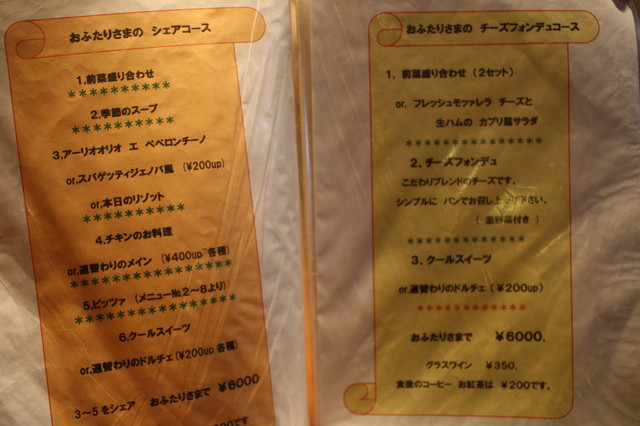 おふたりさまの シェアコース
1,前菜盛り合わせ
**********
2.季節のスープ
**********
3.アーリオオリオ エ ペペロンチーノ
or,スパゲッティジェノバ風 (¥200up)
or,本日のリゾット
**********
4.チキンのお料理
or,週替わりのメイン (¥400up~各種)
***************
5.ピッツァ (メニューNo.2～8より)
***************
6.クールスイーツ
or,週替わりのドルチェ(¥200up 各種)
3～5をシェア おふたりさまで ¥6000
グラスワイン ¥350.
おふたりさまの チーズフォンデュコース
1. 前菜盛り合わせ (2セット)
or. フレッシュモッツァレラ チーズと
生ハムの カプリ風サラダ
**************
2. チーズフォンデュ
こだわりブレンドのチーズです。
シンプルに パンでお召し上がり下さい。
(温野菜付き )
************
3. クールスイーツ
or,週替わりのドルチェ (¥200up)
************
おふたりさまで ¥6000.
グラスワイン ¥350.
食後のコーヒー お紅茶は ¥200です。